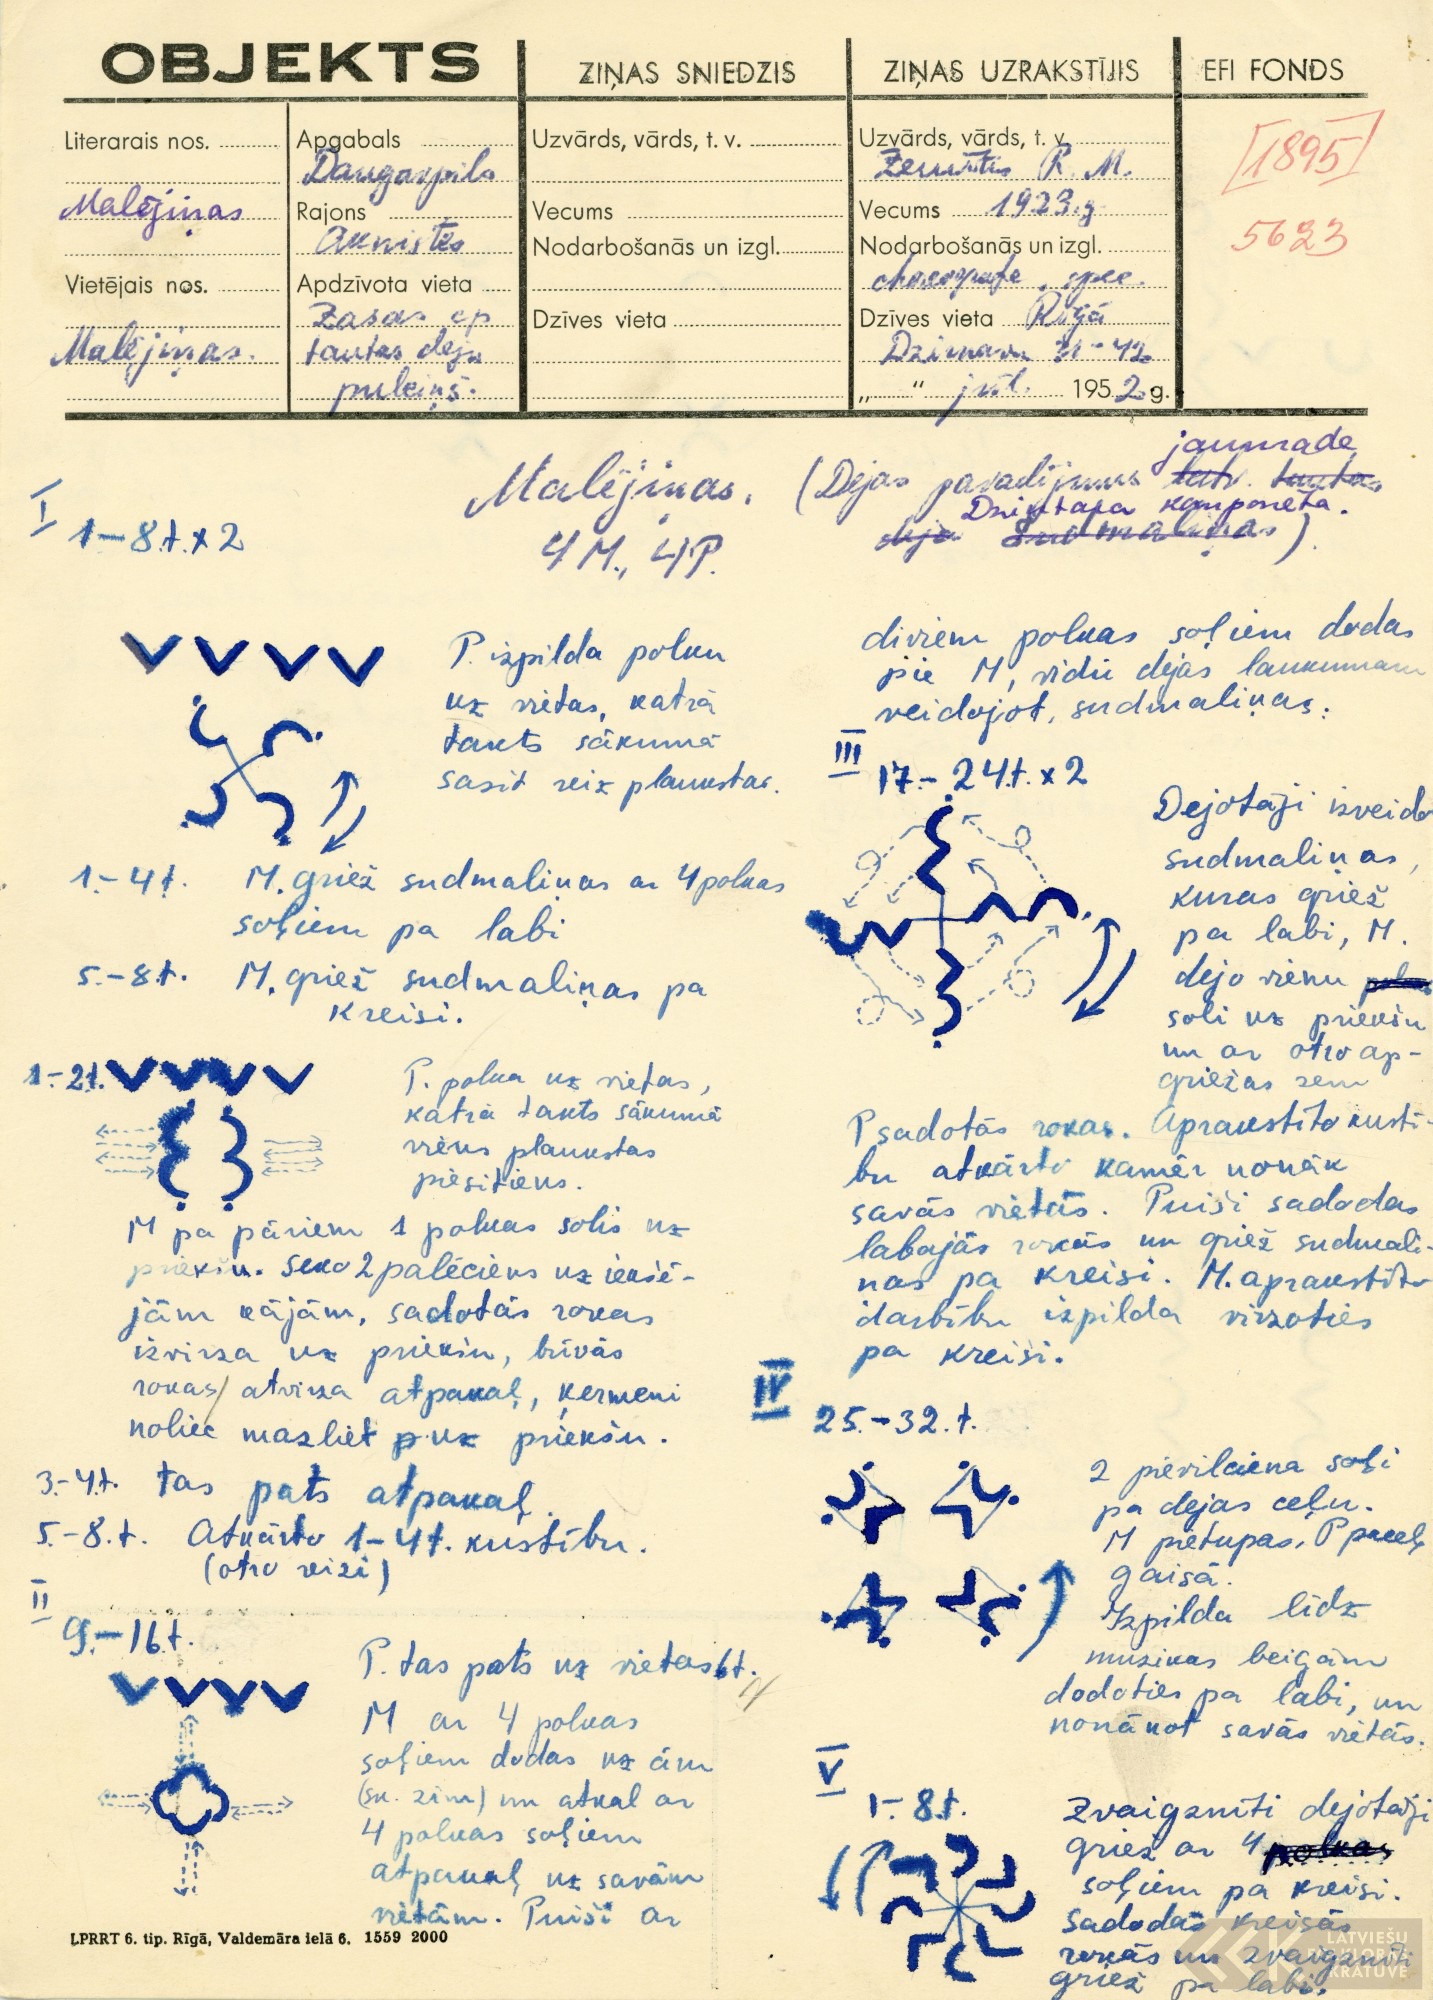 OBJEKTS
ZIŅAS SNIEDZIS
ZIŅAS UZRAKSTĪJIS
EFI FONDS
Literarais nos.
Malējiņas
Vietējais nos.
Malējiņas.
Apgabals
Daugavpils
Rajons
Aknīstes
Apdzīvota vieta
Zasas cp
tautas deju
pulciņš.
Uzvārds, vārds, t. v.
Vecums
Nodarbošanās un izgl.
Dzīves vieta
Uzvārds, vārds, t. v.
R. M.
Vecums 1923.g
Nodarbošanās un izgl.
spec.
Dzīves vieta Rīgā
Dzirnavu 31-42
„ “ jūl. 1952 g.
[1895]
5623
Malējiņas. (Dejas pavadījums latv. tautas
jaunrade
Dzintara komponēta.
deja Sudmaliņas).
4M., 4P.
I
1-8.t.x2
P. izpilda polku
uz vietas, katrā
takts sākumā
sasit reiz plaukstas.
1.-4t. M. griež sudmaliņas ar 4 polkas
soļiem pa labi
5.-8t. M. griež sudmaliņas pa
kreisi.
1.-2t.
P. polka uz vietas,
katrā takts sākumā
viens plaukstas
piesitiens.
M pa pāriem 1 polkas solis uz
priekšu. Seko 2 palēciens uz iekšē-
jām kājām, sadotās rokas
izvirza uz priekšu, brīvās
rokas atvirza atpakaļ, ķermeni
noliec mazliet uz priekšu.
3.-4t. tas pats atpakaļ.
5.-8.t. Atkārto 1-4t. kustību.
(otro reizi)
II
9.-16t.
P. tas pats uz vietas 6t.
M ar 4 polkas
soļiem dodas uz ām
(sk. zīm) un atkal ar
4 polkas soļiem
atpakaļ uz savām
vietām. Puiši ar
diviem polkas soļiem dodas
pie M, vidū dejas laukumam
veidojot, sudmaliņas:
III
17.-24t.x2
Dejotāji izveido
sudmaliņas,
kuras griež
pa labi, M.
dejo vienu
soli uz priekšu
un ar otro ap-
griežas zem
P sadotās rokas. Aprakstīto kustī-
bu atkārto kamēr nonāk
savās vietās. Puiši sadodas
labajās rokās un griež sudmali-
ņas pa kreisi. M. aprakstīto
darbību izpilda virzoties
pa kreisi.
IV
25.-32.t.
2 pievilciena soļi
pa dejas ceļu.
M pietupas, P paceļ
gaisā.
Izpilda līdz
mūzikas beigām
dodoties pa labi, un
nonākot savās vietās.
V
1-8t.
Zvaigznīti dejotāji
griež ar 4 polkas
soļiem pa kreisi.
Sadodas kreisās
rokās un zvaigznīti
griež pa labi.
LPRRT 6. tip. Rīgā, Valdemāra ielā 6. 1559 2000
LATVIEŠU
FOLKLORAS
KRĀTUVE